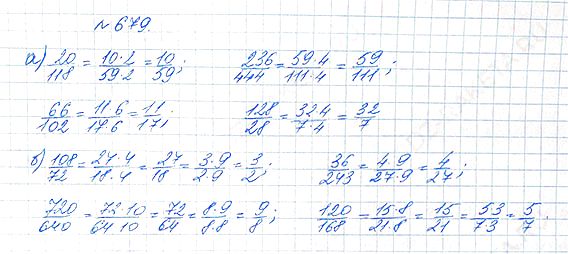 № 679.
а) 20/118 = 10·2/59·2 = 10/59; 236/444 = 59·4/111·4 = 59/111;
66/102 = 11·6/17·6 = 11/17; 128/28 = 32·4/7·4 = 32/7
б) 108/72 = 27·4/18·4 = 27/18 = 3·9/2·9 = 3/2; 36/243 = 4·9/27·9 = 4/27;
720/640 = 72·10/64·10 = 72/64 = 8·9/8·8 = 9/8; 120/168 = 15·8/21·8 = 15/21 = 5·3/7·3 = 5/7.